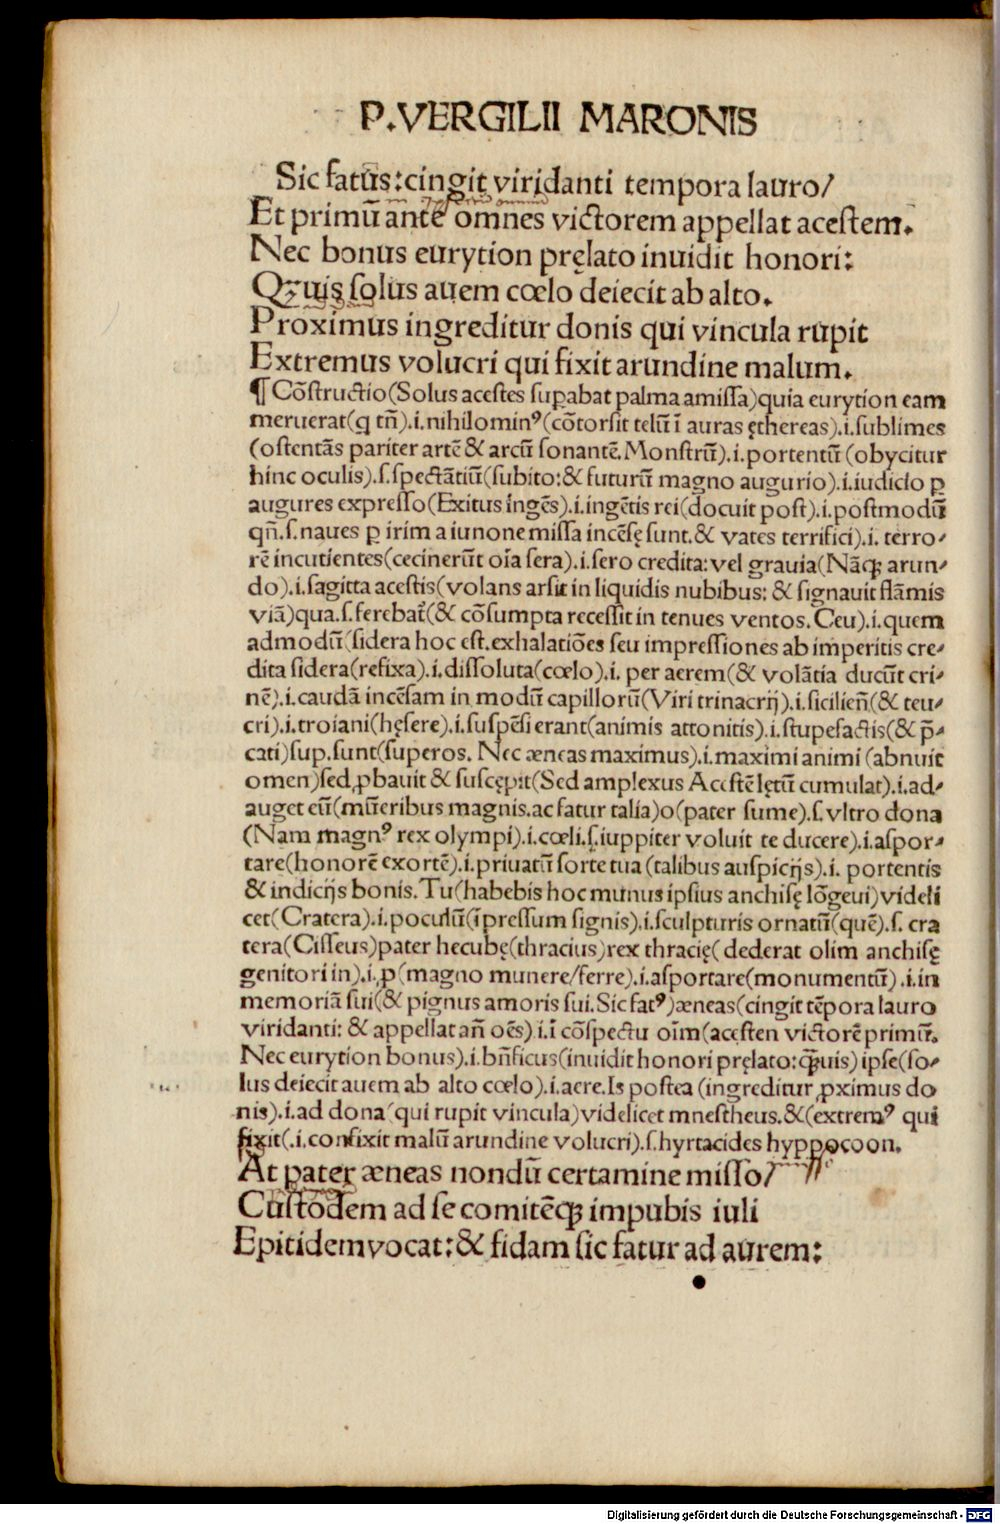 P.VERGILII MARONIS
Sic fatus:cingit viridanti tempora lauro/
Et primũ ante omnes victorem appellat acestem.
Nec bonus eurytion pręlato inuidit honori:
Qꝫuis solus auem cœlo deiecit ab alto.
Proximus ingreditur donis qui vincula rupit
Extremus volucri qui fixit arundine malum.
¶ Cõstructio(Solus acestes supabat palma amissa)quia eurytion eam
meruerat(q tñ).i.nihilominꝰ(cõtorsit telũ ĩ auras ęthereas).i.sublimes
(ostentãs pariter artẽ & arcũ sonantẽ.Monstrũ).i.portentũ(obycitur
hinc oculis).s.spectãtiũ(subito:& futurũ magno augurio).i.iudicio ꝑ
augures expresso(Exitus ingẽs).i.ingẽtis rei(docuit post).i.postmodũ
qñ.s.naues ꝑ irim a iunone missa incẽsę sunt.& vates terrifici).i. terro/
rẽ incutientes(cecinerũt oĩa sera).i.sero credita:vel grauia(Nãqꝫ arun/
do).i.sagitta acestis(volans arsit in liquidis nubibus: & signauit flãmis
viã)qua.s.ferebat̃(& cõsumpta recessit in tenues ventos. Ceu).i.quem
admodũ(sidera hoc est.exhalatiões seu impressiones ab imperitis cre/
dita sidera(refixa).i.dissoluta(cœlo).i. per aerem(& volãtia ducũt cri/
nẽ).i.caudã incẽsam in modũ capillorũ(Viri trinacrij).i.sicilieñ(& teu/
cri).i.troiani(hęsere).i.suspẽsi erant(animis attonitis).i.stupefactis(& p̃/
cati)sup.sunt(superos. Nec æneas maximus).i.maximi animi (abnuit
omen)sed ꝓbauit & suscępit(Sed amplexus Acestẽ lętũ cumulat).i.ad/
auget eũ(mũeribus magnis.ac fatur talia)o(pater sume).s.vltro dona
(Nam magnꝰ rex olympi).i.cœli.s.iuppiter voluit te ducere).i.aspor/
tare(honorẽ exortẽ).i.priuatũ sorte tua (talibus auspicijs).i. portentis
& indicijs bonis. Tu(habebis hoc munus ipsius anchisę lõgeui)videli
cet(Cratera).i.poculũ(ĩpressum signis).i.sculpturis ornatũ(quẽ).s. cra
tera(Cisseus)pater hecubę(thracius)rex thracię( dederat olim anchisę
genitori in).i.ꝓ(magno munere/ferre).i.asportare(monumentũ).i.in
memoriã sui(& pignus amoris sui.Sic fatꝰ)æneas(cingit tẽpora lauro
viridanti: & appellat añ oẽs).i.ĩ cõspectu oĩm(acęsten victorẽ primũ.
Nec eurytion bonus).i.bñficus(inuidit honori pręlato:qꝫuis) ipse(so/
lus deiecit auem ab alto cœlo).i.aere.Is postea (ingreditur ꝓximus do
nis).i.ad dona(qui rupit vincula)videlicet mnestheus.&(extremꝰ qui
fixit(.i.confixit malũ arundine volucri).s.hyrtacides hyppocoon.
At pater æneas nondũ certamine misso/
Custodem ad se comitẽqꝫ impubis iuli
Epitidem vocat:& fidam sic fatur ad aurem:
Digitalisierung gefördert durch die Deutsche Forschungsgemeinschaft - DFG